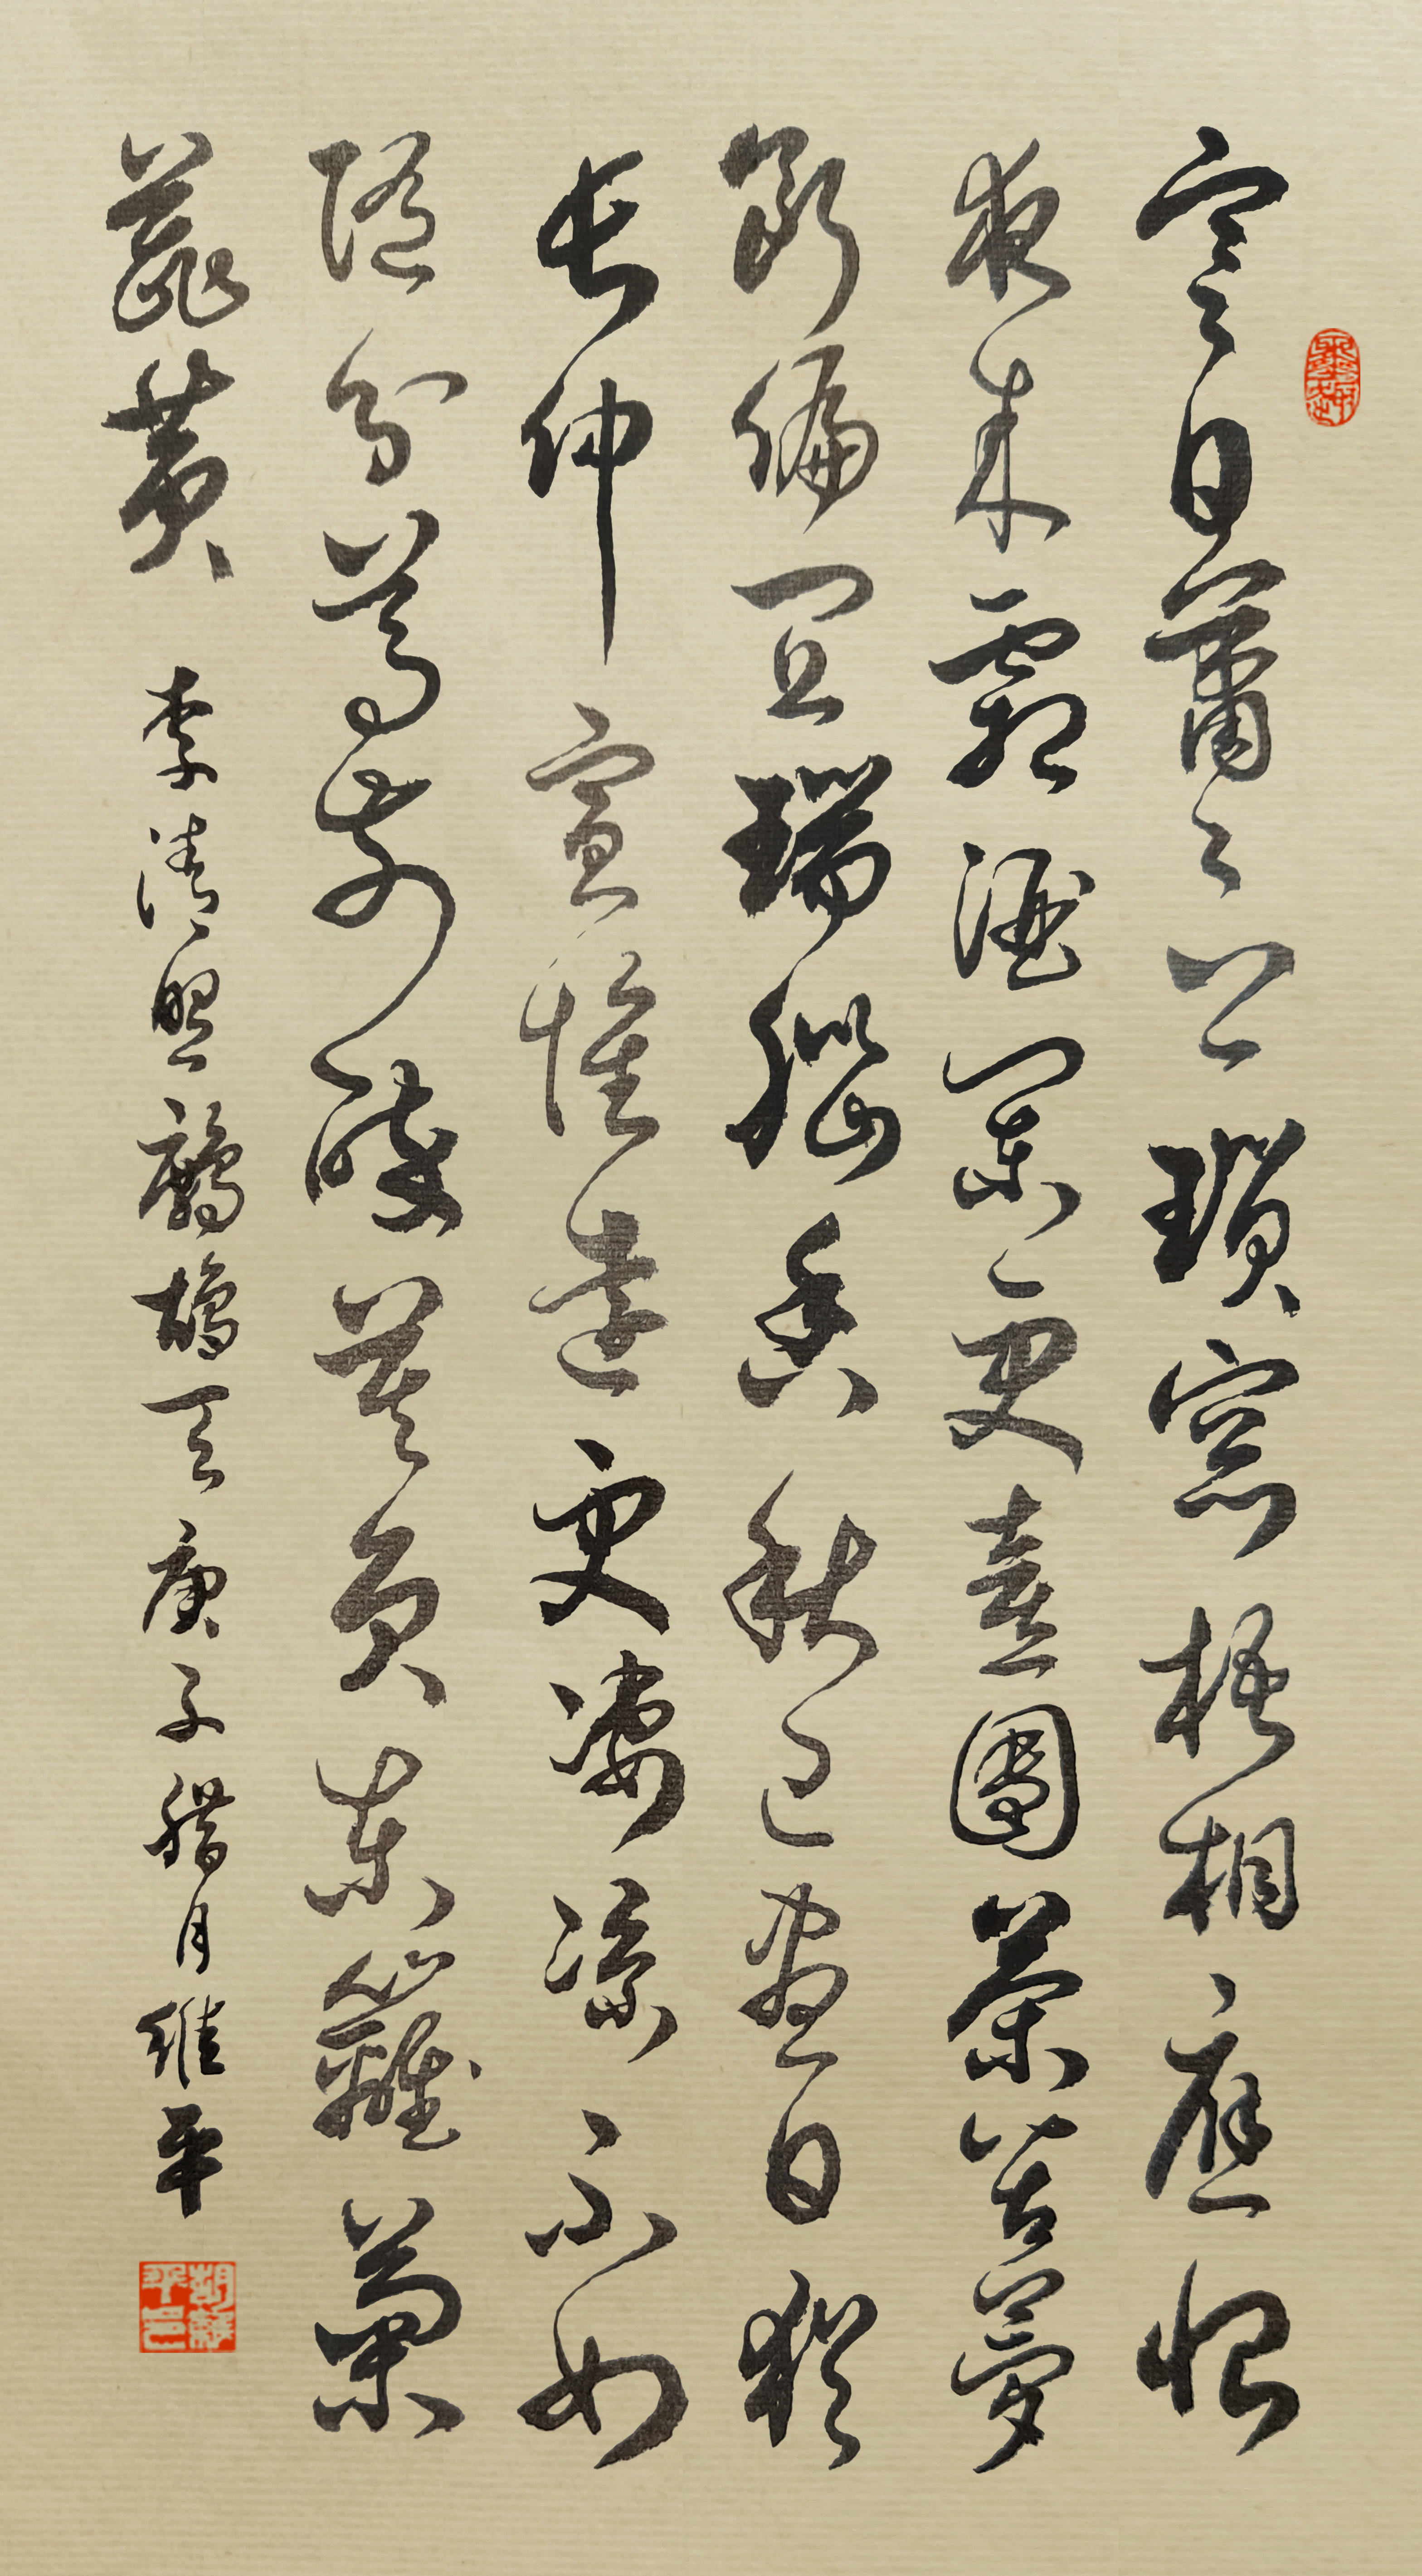 寒日蕭〻上瑣窗梧桐應恨
夜来霜酒闌更喜團茶苦夢
斷偏宜瑞腦香秋已盡日猶
長仲宣懷遠更淒涼不如
隨分尊前醉莫負東籬菊
蕊黄 李清照鷓鴣天庚子腊月維平
胡維平印